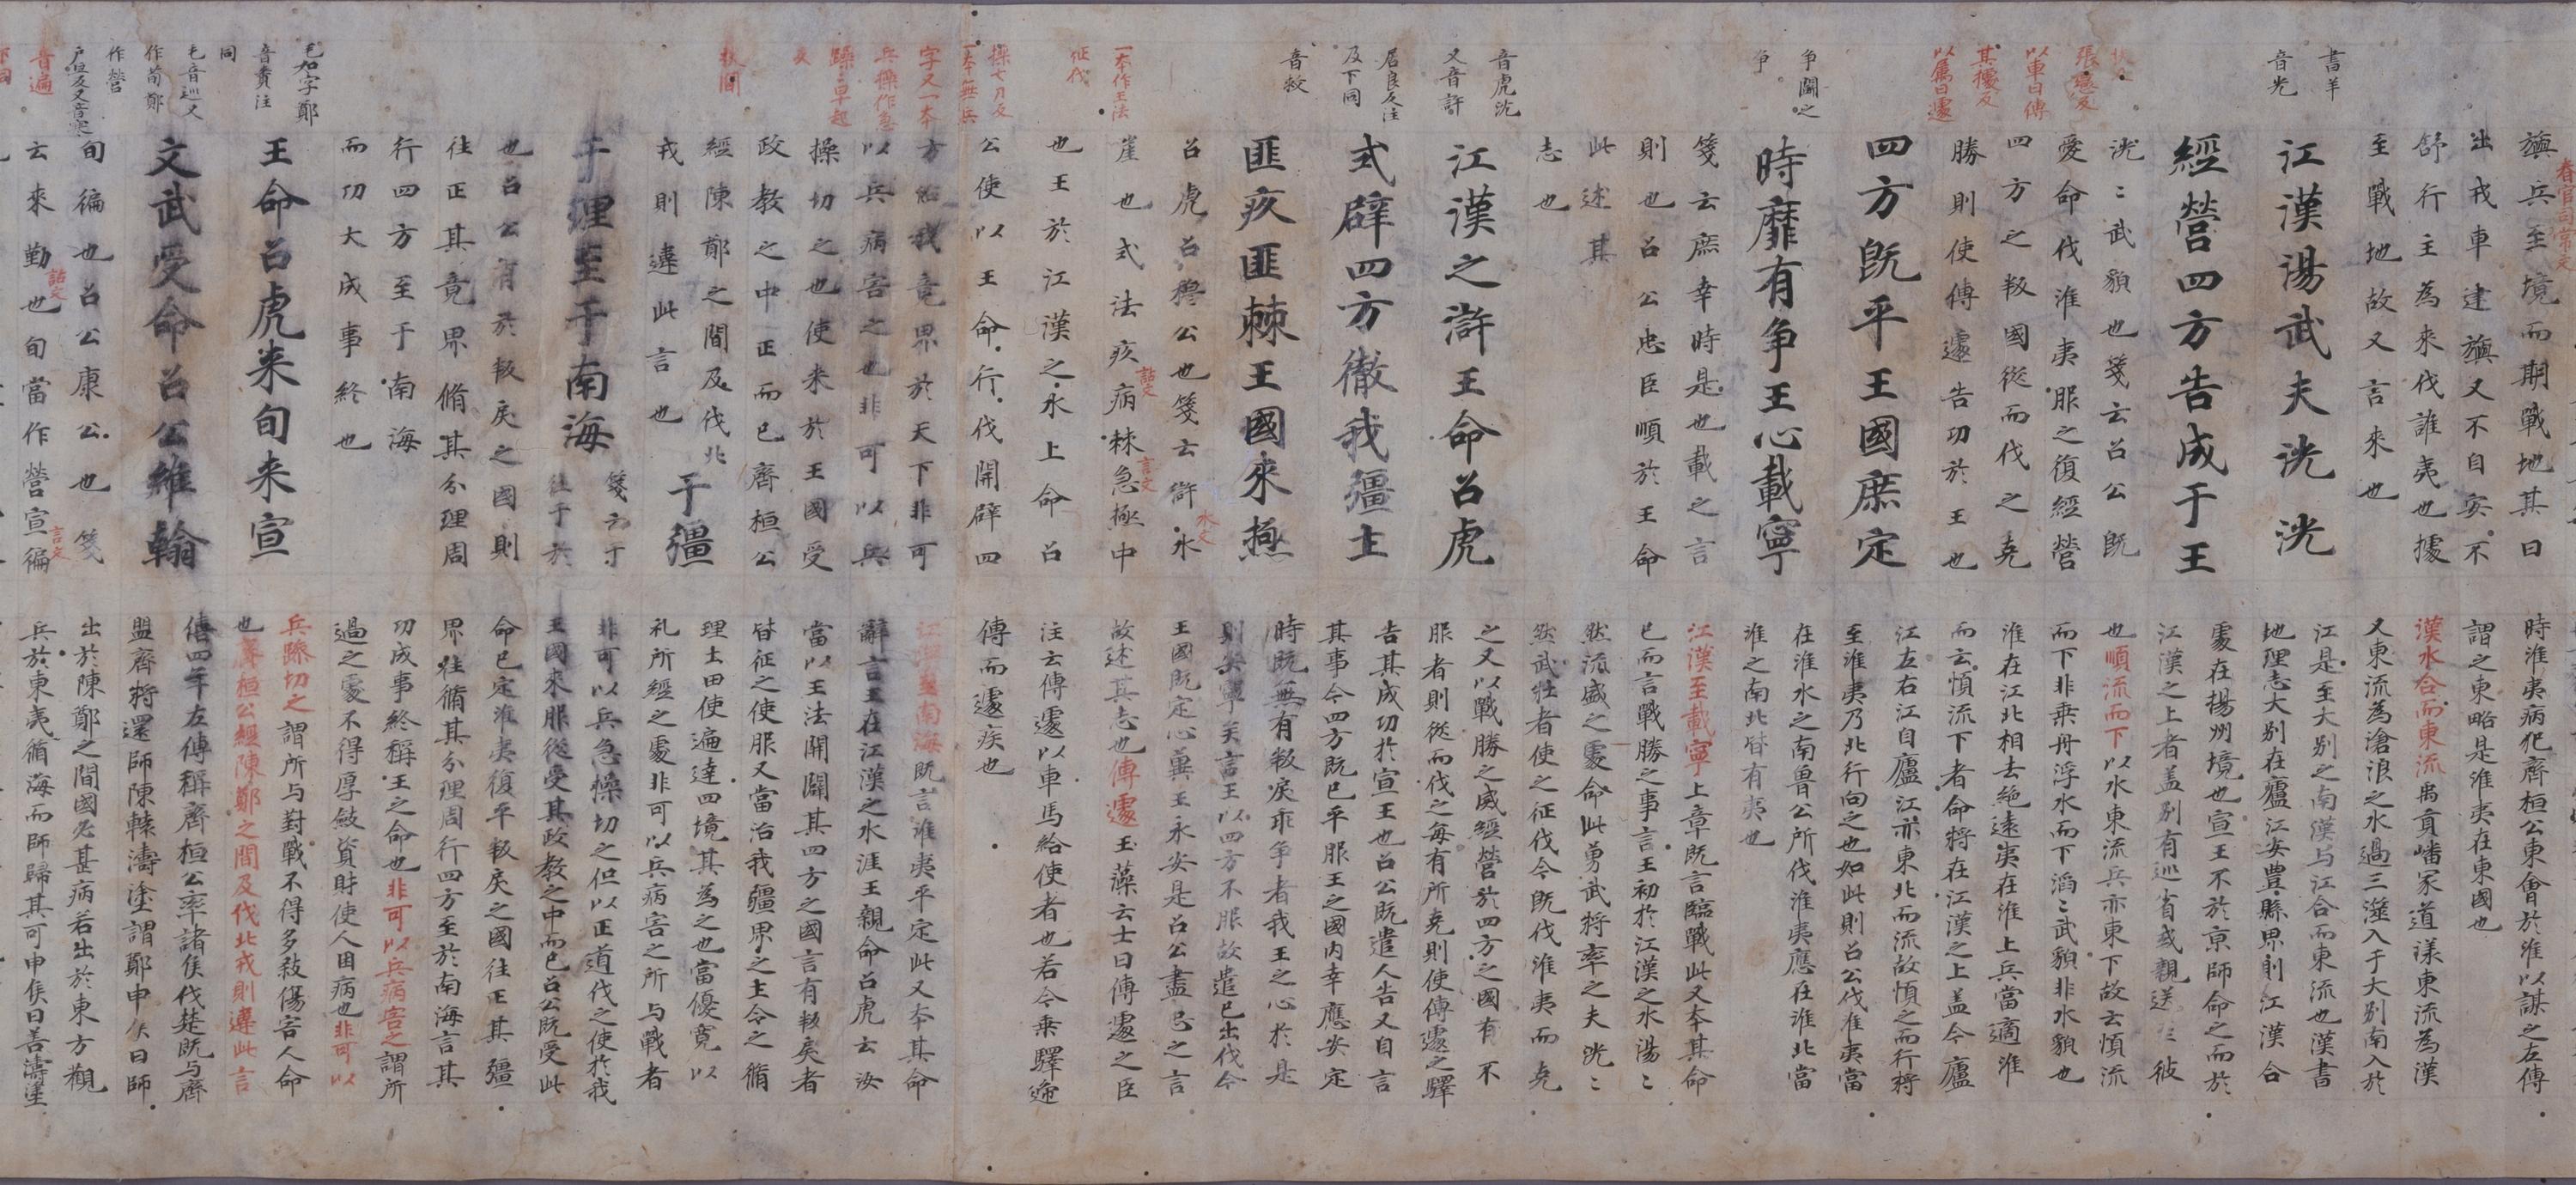 春官司常文
旟兵至境而期戰地其曰
出戎車建旟又不自安不
舒行主為來伐誰夷也據
至戰地故又言來也
書羊
音光
江漢湯武夫洸洸
經營四方告成于王
洸〻武貌也箋云召公既
愛命伐淮夷服之復經營
四方之叛國從而伐之克
勝則使傳遽告功於王也
張戀反
以車曰傳
其據反
以馬曰遽
四方既平王國庶定
時靡有争王心載寧
争鬬之
争
箋云庶幸時是也載之言
則也召公忠臣順於王命
此述其
志也
江漢之滸王命召虎
式辟四方徹我疆土
匪疚匪棘王國来極
音虎沈
又音許
居良反注
及下同
音救
召虎召穆公也箋云滸水
水文
崖也式法疚病棘急極中
詁文
言文
也王於江漢之水上命召
公使以王命行伐開辟四
方治我竟界於天下非可
以兵病害之也非可以兵
操切之也使来於王國受
政教之中正而已齊桓公
經陳鄭之間及伐北
戎則違此言也
一本作王法
征伐
操七刀反
一本無兵
字又一本
兵操作急
躁早起
反
于疆
于理至于南海
箋云于
往于於
也召公有於叛戾之國則
往正其竟界脩其分理周
行四方至于南海
而功大成事終也
王命召虎来旬来宣
文武受命召公維翰
毛如字鄭
音賚注
同
毛音巡又
作荀鄭
作營
戶旦反又音寒
音遍
旬徧也召公康公也箋
云來勤也旬當作營宣徧
詁文
言文
時淮夷病犯齊桓公東會於淮以謀之左傳
謂之東略是淮夷在東國也
漢水合而東流禹貢嶓冢道漾東流為漢
又東流為滄浪之水過三澨入于大别南入於
江是至大别之南漢与江合而東流也漢書
地理志大别在廬江安豊縣界則江漢合
處在揚州境也宣王不於京師命之而於
江漢之上者盖别有巡省或親送〻彼
也順流而下以水東流兵亦東下故云順流
而下非乗舟浮水而下滔〻武貌非水貌也
淮在江北相去絶遠夷在淮上兵當適淮
而云順流下者命將在江漢之上盖今廬
江左右江自廬江亦東北而流故順之而行將
至淮夷乃北行向之也如此則召公伐淮夷當
在淮水之南魯公所伐淮夷應在淮北當
淮之南北皆有夷也
江漢至載寧上章既言臨戰此又本其命
已而言戰勝之事言王初於江漢之水湯〻
然流盛之處命此勇武將率之夫洸〻
然武壮者使之征伐今既伐淮夷而克
之又以戰勝之威經營於四方之國有不
服者則從而伐之毎有所克則使傳遽之驛
告其成功於宣王也召公既遣人告又自言
其事今四方既已平服王之國内幸應安定
時既無有叛戾乖争者我王之心於是
則安寧矣言王以四方不服故遣已出伐今
王國既定心冀王永安是召公盡忠之言
故述其志也傳遽玉藻云士曰傳遽之臣
注云傳遽以車馬給使者也若今乗驛遞
傳而遽疾也
江漢至南海既言淮夷平定此又本其命
辭言王在江漢之水涯王親命召虎云汝
當以王法開闢其四方之國言有叛戾者
皆征之使服又當治我疆界之土令之脩
理土田使遍達四境其為之也當優寛以
礼所經之處非可以兵病害之所与戰者
非可以兵急懆切之但以正道伐之使於我
王國来服從受其政教之中而已召公既受此
命已定淮夷復平叛戾之國往正其疆
界往脩其分理周行四方至於南海言其
功成事終稱王之命也非可以兵病害之謂所
過之處不得厚斂資財使人困病也非可以
兵躁切之謂所与對戰不得多殺傷害人命
也齊桓公經陳鄭之間及伐北戎則違此言
僖四年左傳稱齊桓公率諸侯伐楚既与齊
盟齊將還師陳轅濤塗謂鄭申侯曰師
出於陳鄭之間國必甚病若出於東方觀
兵於東夷循海而師歸其可申侯曰善濤塗